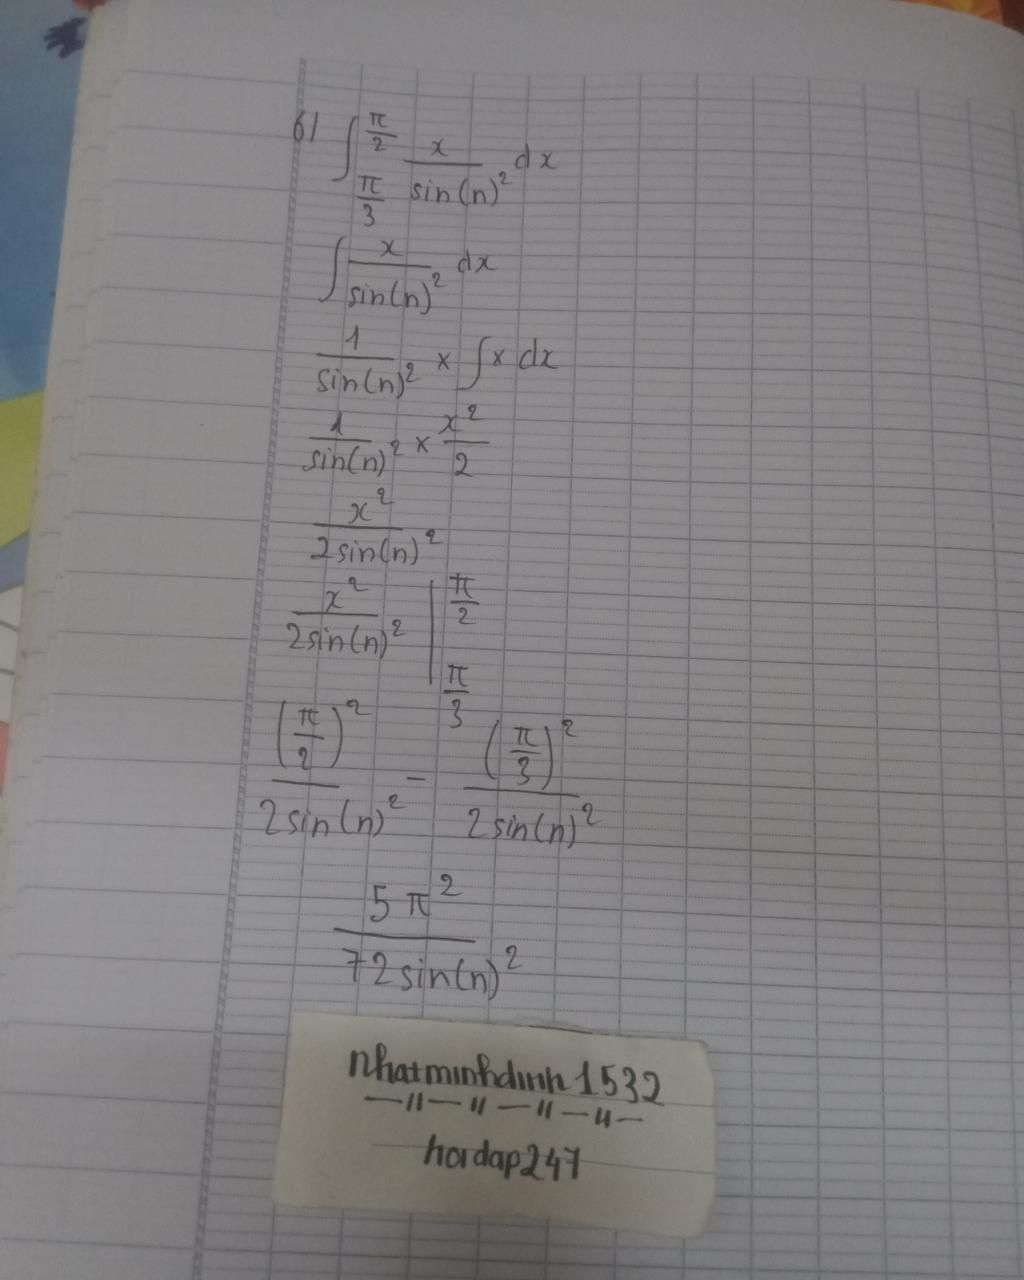 6) ∫ π/2 π/3 x/sin(n)² dx
∫ x/sin(n)² dx
1/sin(n)² × ∫ x dx
1/sin(n)² × x²/2
x²/2sin(n)²
x²/2sin(n)² | π/2 π/3
(π/2)²/2sin(n)² - (π/3)²/2sin(n)²
5π²/72sin(n)²
nhatminhdinh1532
hoidap247